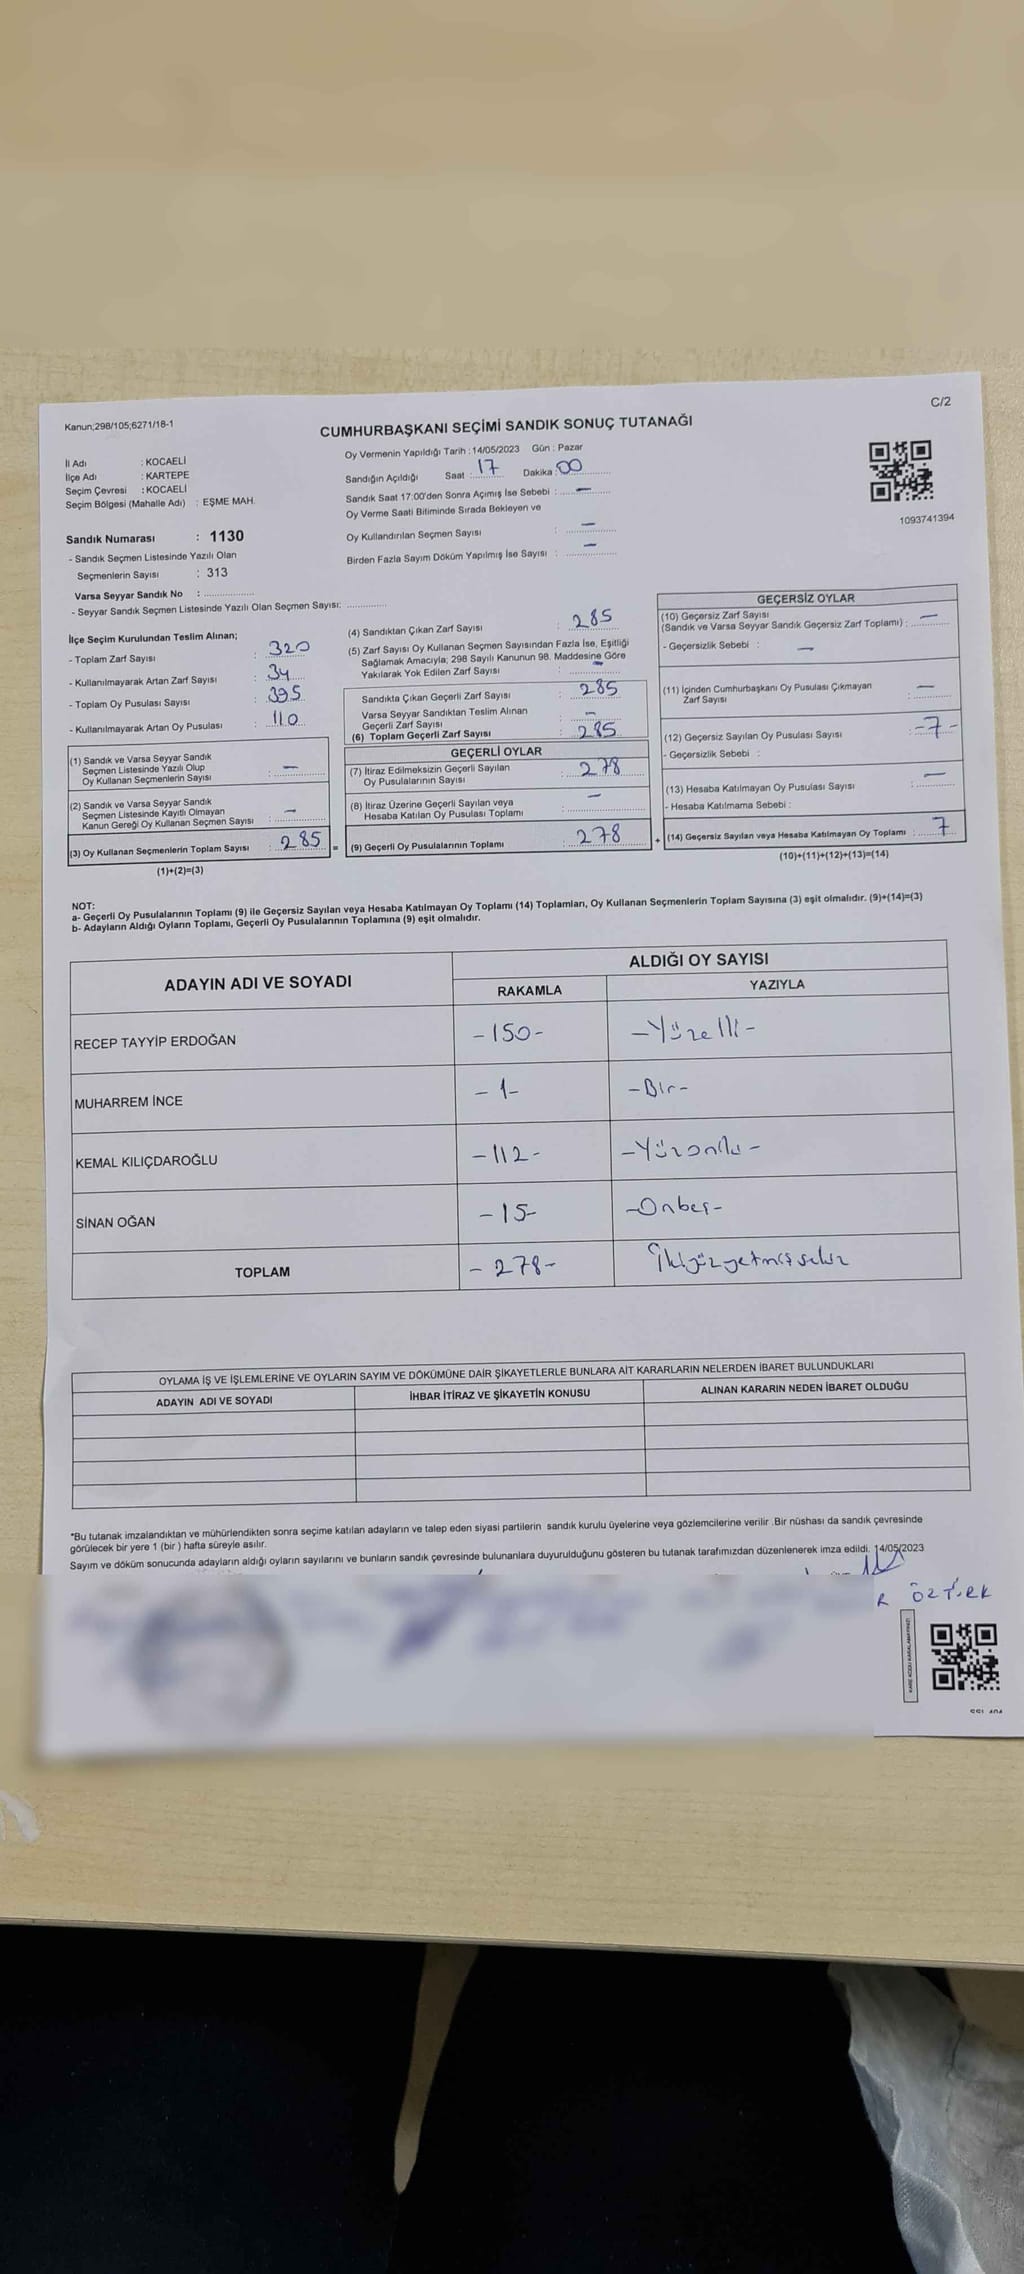 Kanun;298/105;6271/18-1
C/2
CUMHURBAŞKANI SEÇİMİ SANDIK SONUÇ TUTANAĞI
İl Adı : KOCAELİ
İlçe Adı : KARTEPE
Seçim Çevresi : KOCAELİ
Seçim Bölgesi (Mahalle Adı) : EŞME MAH.
Oy Vermenin Yapıldığı Tarih : 14/05/2023 Gün : Pazar
Sandığın Açıldığı Saat : 17 Dakika : 00
Sandık Saat 17:00'den Sonra Açımış İse Sebebi : —
Oy Verme Saati Bitiminde Sırada Bekleyen ve
Oy Kullandırılan Seçmen Sayısı : —
Birden Fazla Sayım Döküm Yapılmış İse Sayısı : —
1093741394
Sandık Numarası : 1130
- Sandık Seçmen Listesinde Yazılı Olan
Seçmenlerin Sayısı : 313
Varsa Seyyar Sandık No :
- Seyyar Sandık Seçmen Listesinde Yazılı Olan Seçmen Sayısı:
İlçe Seçim Kurulundan Teslim Alınan;
- Toplam Zarf Sayısı : 320
- Kullanılmayarak Artan Zarf Sayısı : 34
- Toplam Oy Pusulası Sayısı : 395
- Kullanılmayarak Artan Oy Pusulası : 110
(1) Sandık ve Varsa Seyyar Sandık
Seçmen Listesinde Yazılı Olup
Oy Kullanan Seçmenlerin Sayısı : —
(2) Sandık ve Varsa Seyyar Sandık
Seçmen Listesinde Kayıtlı Olmayan
Kanun Gereği Oy Kullanan Seçmen Sayısı : —
(3) Oy Kullanan Seçmenlerin Toplam Sayısı : 285
(1)+(2)=(3)
=
(4) Sandıktan Çıkan Zarf Sayısı : 285
(5) Zarf Sayısı Oy Kullanan Seçmen Sayısından Fazla İse, Eşitliği
Sağlamak Amacıyla; 298 Sayılı Kanunun 98. Maddesine Göre
Yakılarak Yok Edilen Zarf Sayısı : —
Sandıkta Çıkan Geçerli Zarf Sayısı : 285
Varsa Seyyar Sandıktan Teslim Alınan
Geçerli Zarf Sayısı : —
(6) Toplam Geçerli Zarf Sayısı : 285
GEÇERLİ OYLAR
(7) İtiraz Edilmeksizin Geçerli Sayılan
Oy Pusulalarının Sayısı : 278
(8) İtiraz Üzerine Geçerli Sayılan veya
Hesaba Katılan Oy Pusulası Toplamı : —
(9) Geçerli Oy Pusulalarının Toplamı : 278
+
GEÇERSİZ OYLAR
(10) Geçersiz Zarf Sayısı
(Sandık ve Varsa Seyyar Sandık Geçersiz Zarf Toplamı) : —
- Geçersizlik Sebebi : —
(11) İçinden Cumhurbaşkanı Oy Pusulası Çıkmayan
Zarf Sayısı : —
(12) Geçersiz Sayılan Oy Pusulası Sayısı : -7-
- Geçersizlik Sebebi :
(13) Hesaba Katılmayan Oy Pusulası Sayısı : —
- Hesaba Katılmama Sebebi :
(14) Geçersiz Sayılan veya Hesaba Katılmayan Oy Toplamı : 7
(10)+(11)+(12)+(13)=(14)
NOT:
a- Geçerli Oy Pusulalarının Toplamı (9) ile Geçersiz Sayılan veya Hesaba Katılmayan Oy Toplamı (14) Toplamları, Oy Kullanan Seçmenlerin Toplam Sayısına (3) eşit olmalıdır. (9)+(14)=(3)
b- Adayların Aldığı Oyların Toplamı, Geçerli Oy Pusulalarının Toplamına (9) eşit olmalıdır.
ADAYIN ADI VE SOYADI
ALDIĞI OY SAYISI
RAKAMLA YAZIYLA
RECEP TAYYİP ERDOĞAN -150- -Yüzelli-
MUHARREM İNCE -1- -Bir-
KEMAL KILIÇDAROĞLU -112- -Yüzoniki-
SİNAN OĞAN -15- -Onbeş-
TOPLAM -278- İkiyüzyetmişsekiz
OYLAMA İŞ VE İŞLEMLERİNE VE OYLARIN SAYIM VE DÖKÜMÜNE DAİR ŞİKAYETLERLE BUNLARA AİT KARARLARIN NELERDEN İBARET BULUNDUKLARI
ADAYIN ADI VE SOYADI İHBAR İTİRAZ VE ŞİKAYETİN KONUSU ALINAN KARARIN NEDEN İBARET OLDUĞU
*Bu tutanak imzalandıktan ve mühürlendikten sonra seçime katılan adayların ve talep eden siyasi partilerin sandık kurulu üyelerine veya gözlemcilerine verilir .Bir nüshası da sandık çevresinde
görülecek bir yere 1 (bir ) hafta süreyle asılır.
Sayım ve döküm sonucunda adayların aldığı oyların sayılarını ve bunların sandık çevresinde bulunanlara duyurulduğunu gösteren bu tutanak tarafımızdan düzenlenerek imza edildi. 14/05/2023
R ÖZTÜRK